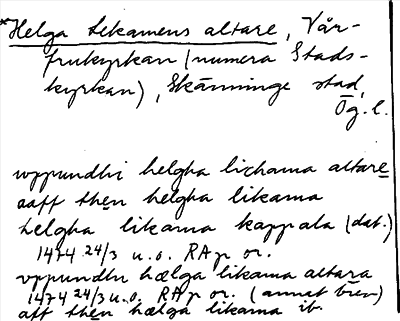 *Helga Lekamens altare, Vår-
frukyrkan (numera Stads-
kyrkan), Skänninge stad,
Ög. l.
vppundhi helgha lichama altare
aaff then helgha likama
helgha likama kappala (dat.)
1474 24/3 u.o. RAp or.
vppundhr hælga likama altara
1474 24/3 u.o. RAp or. (annat brev)
aff then hælga likama ib.